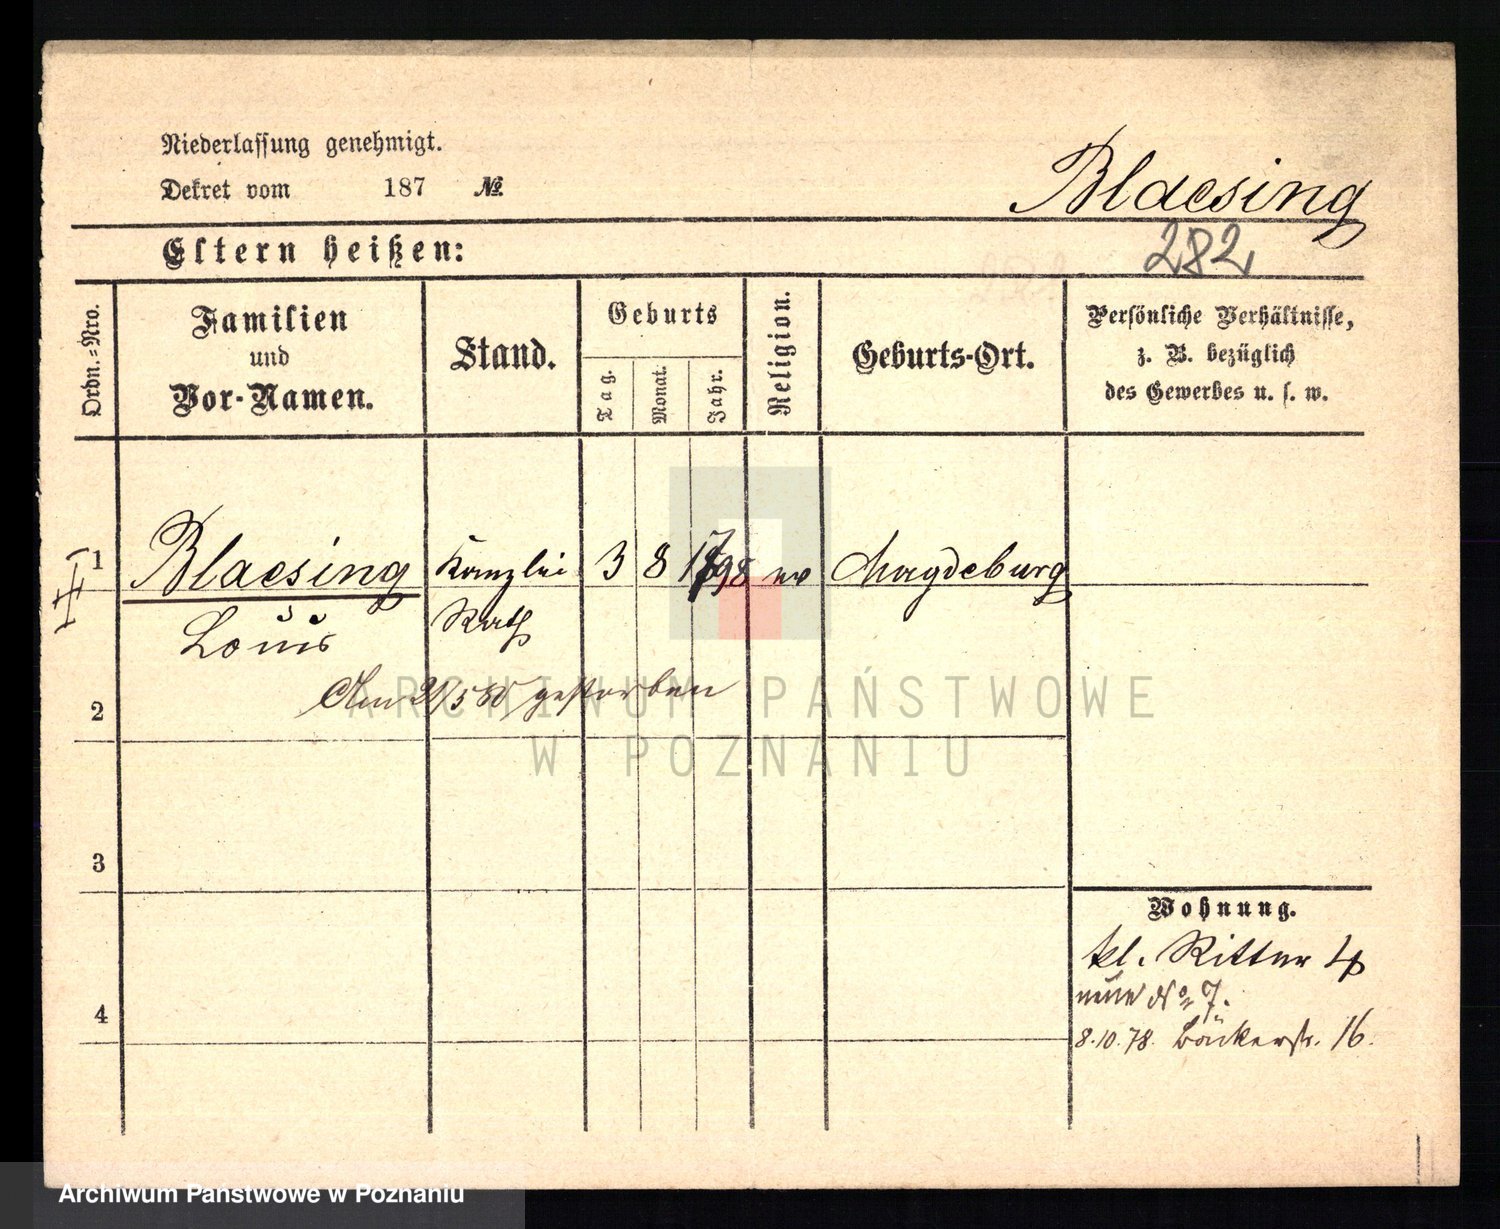 Niederlassung genehmigt.
Dekret vom 187 №
Blaesing
Eltern heißen:
282
Ordn.=Nro.
Familien
und
Vor-Namen.
Stand.
Geburts
Tag.
Monat.
Jahr.
Religion.
Geburts-Ort.
Persönliche Verhältnisse,
z. B. bezüglich
des Gewerbes u. s. w.
1 Blaesing Kanzlei 3 8 1798 ev Magdeburg
Louis Rath
Am 2/5 80 gestorben
2
3
4
Wohnung.
kl. Ritter 4
neue No 7.
8.10.78. Bäckerstr. 16.
ARCHIWUM PAŃSTWOWE
W POZNANIU
Archiwum Państwowe w Poznaniu